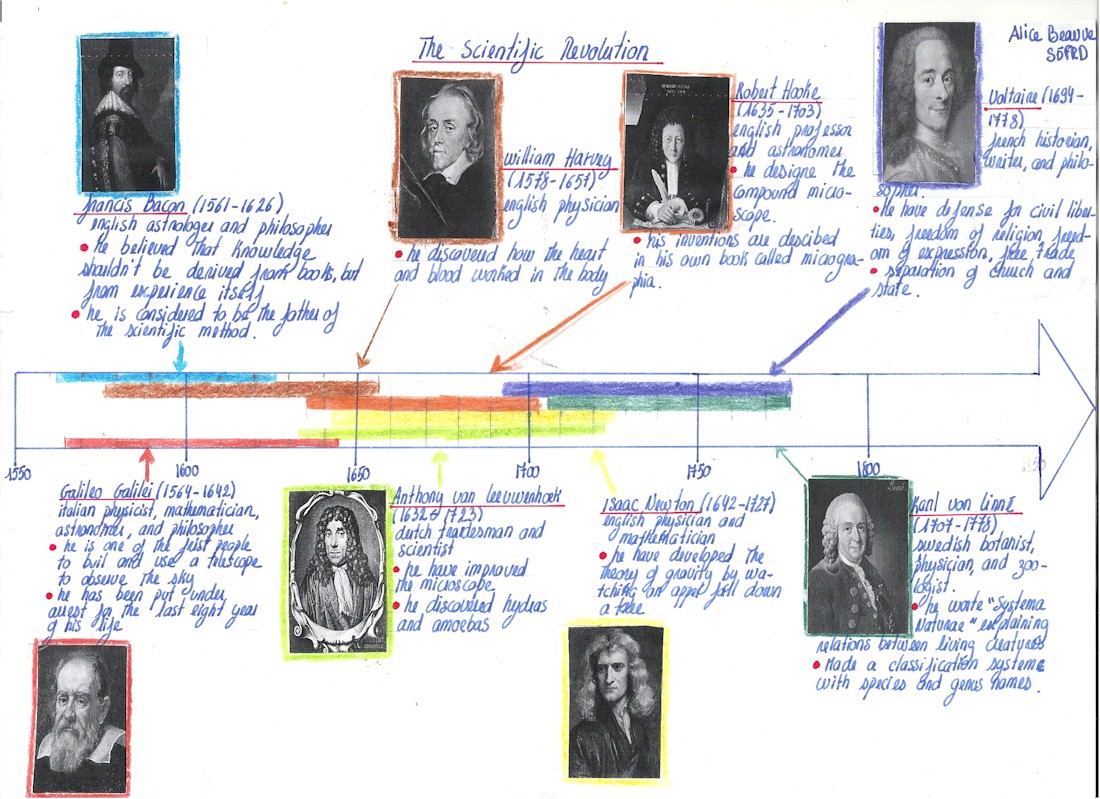 The Scientific Revolution
Alice Beauve
S5PRD
Francis Bacon (1561-1626)
english astrologer and philosopher
• he believed that knowledge
shouldn't be derived from books, but
from experience itself
• he is considered to be the father of
the scientific method.
William Harvey
(1578-1657)
english physician
• he discovered how the heart
and blood worked in the body
Robert Hooke
(1635-1703)
english professor
and astronomer
• he designe the
compound micro-
scope.
• his inventions are descibed
in his own book called microgra-
phia.
Voltaire (1694-
1778)
french historian,
writer, and philo-
sopher.
• He have defense for civil liber-
ties, freedom of religion, freed-
om of expression, free trade
• separation of church and
state.
1550
1600
1650
1700
1750
1800
Galileo Galilei (1564-1642)
italian physicist, mathematician,
astronomer, and philosopher
• he is one of the first people
to buil and use a telescope
to observe the sky
• he has been put under
arrest for the last eight year
of his life
Anthony van Leeuwenhoek
(1632-1723)
dutch tradesman and
scientist
• he have improved
the microscope
• he discovered hydras
and amoebas
Isaac Newton (1642-1727)
english physician and
mathematician
• he have developed the
theory of gravity by wa-
tching an appel fall down
a tree
Karl von Linné
(1707-1778)
swedish botanist,
physician, and zoo-
logist.
• he wrote "Systema
Naturae" explaining
relations between living creatures
• Made a classification systeme
with species and genus names.